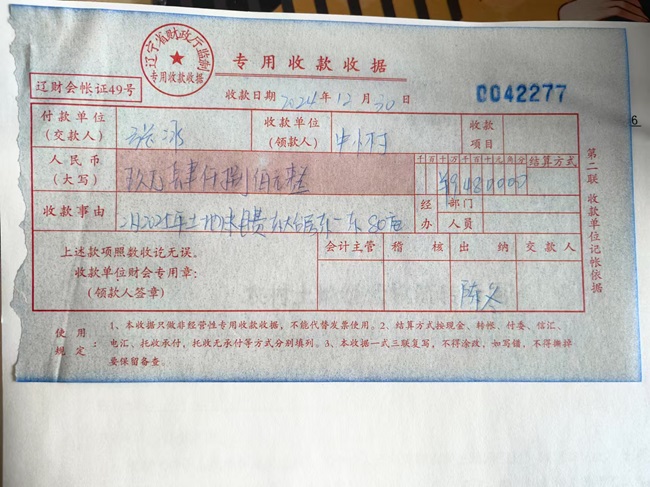 辽宁省财政厅监制
专用收款收据
专用收款收据
辽财会帐证49号
收款日期 2024年12月30日
0042277
付款单位
(交款人)
收款单位
(领款人)
中心村
收款
项目
6
人民币
(大写)
千百十万千百十元角分 结算方式
肆仟捌佰元整
¥9480000
收款事由
2025年土地
经办
部门
人员
上述款项照数收讫无误。
收款单位财会专用章:
(领款人签章)
会计主管 稽核 出纳 交款人
陈冬
第二联 收款单位记帐依据
使用规定
1、本收据只做非经营性专用收款收据,不能代替发票使用。2、结算方式按现金、转帐、付委、信汇、
电汇、托收承付,托收无承付等方式分别填列。3、本收据一式三联复写,不得涂改,如写错,不得撕掉
要保留备查。